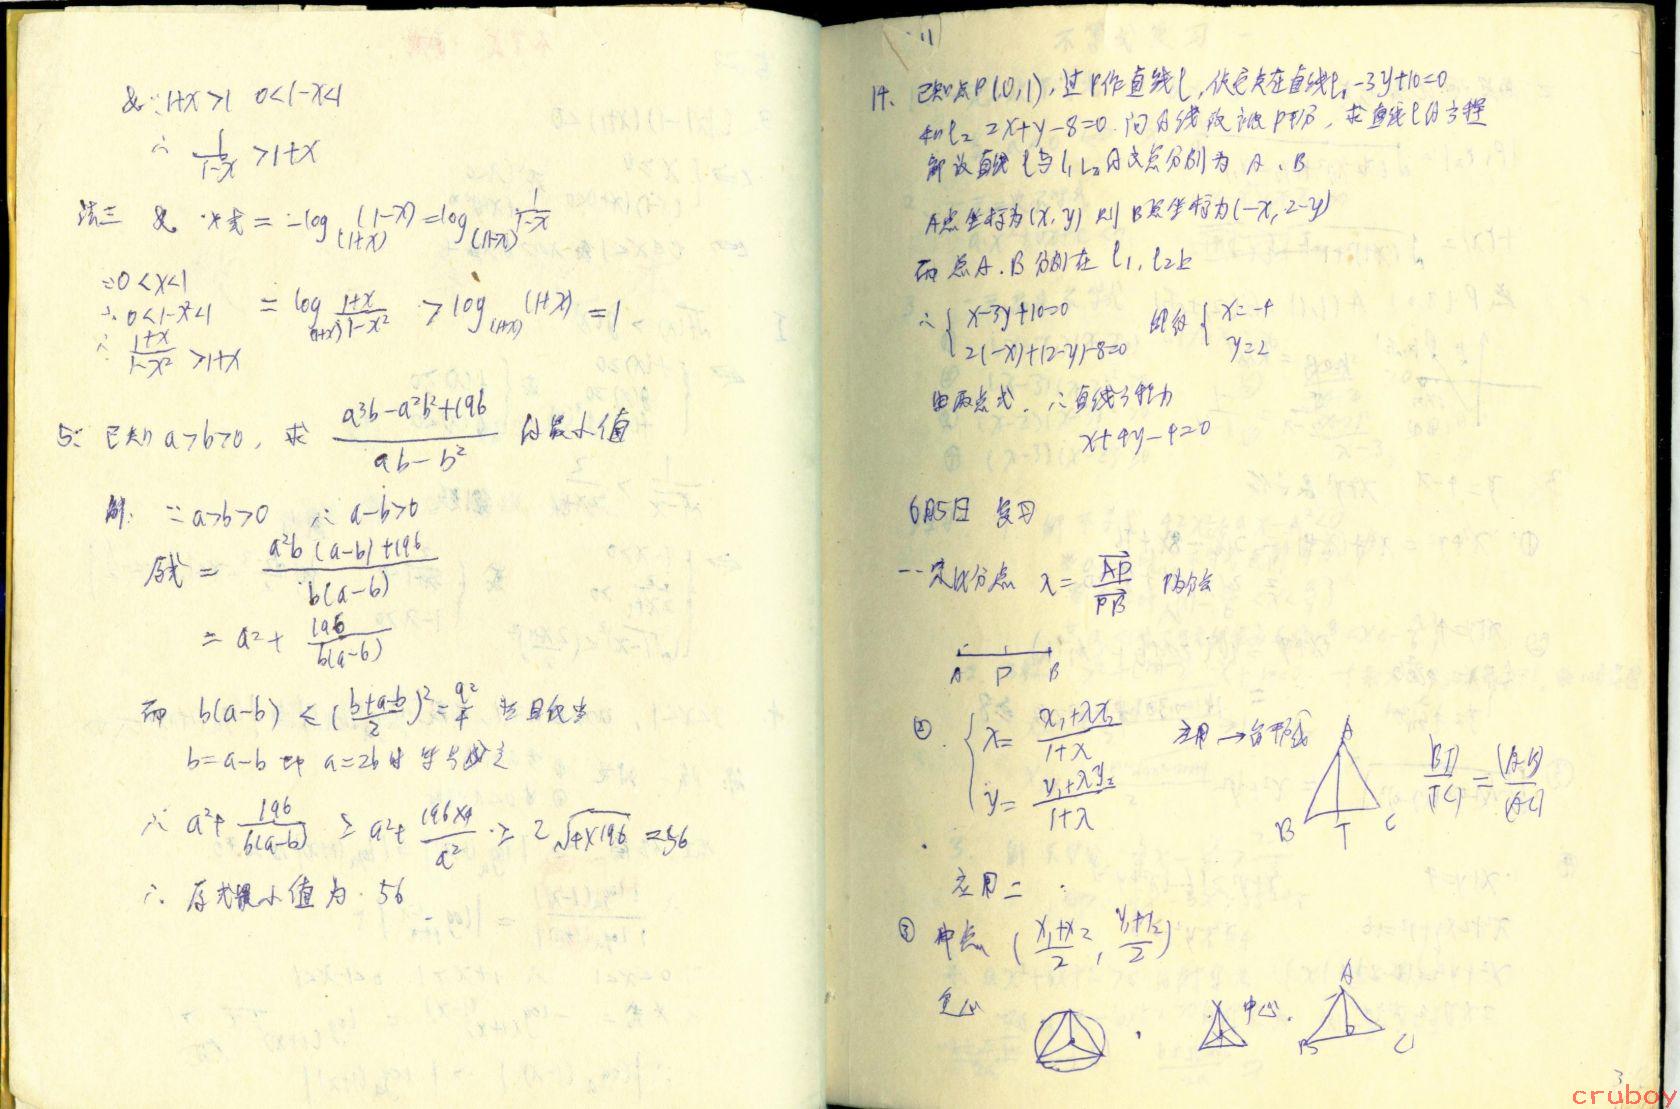 ∵1+x>1 0<1-x<1
∴ 1/(1-x) >1+x
法三 = -log(1+x) (1-x) = log(1+x) 1/(1-x)
∵0<x<1
∴ 0<1-x²<1
∴ (1+x)/(1-x²) >1+x
= log(1+x) (1+x)/(1-x²) > log(1+x) (1+x) = 1
5: 已知 a>b>0, 求 (a³b-a²b²+196)/(ab-b²) 的最小值
解: ∵a>b>0 ∴ a-b>0
原式 = (a²b(a-b)+196)/(b(a-b))
= a²+ 196/(b(a-b))
而 b(a-b) ≤ ((b+a-b)/2)² = a²/4 当且仅当
b=a-b 即 a=2b 时 等号成立
∴ a²+ 196/(b(a-b)) ≥ a²+ (196×4)/a² ≥ 2√(4×196) =56
∴ 原式最小值为 56
11
14. 已知点P(0,1), 过P作直线l, 在直线l₁ -3y+10=0
和l₂ 2x+y-8=0 间的线段被P平分, 求直线l的方程
解 设直线 l与l₁ l₂的交点分别为 A、B
A点坐标为(x,y) 则B点坐标为(-x,2-y)
而点A、B分别在 l₁, l₂上
∴ { x-3y+10=0
2(-x)+(2-y)-8=0 解得 { x=-4
y=2
由两点式, ∴直线方程为
x+4y-4=0
6月5日 复习
一 定比分点 λ = AP/PB P内分
A P B
② { x= (x₁+λx₂)/(1+λ)
y= (y₁+λy₂)/(1+λ)
应用 → 角平分线
A
B T C
|BT|/|TC| = |AB|/|AC|
应用二:
③ 中点 ( (x₁+x₂)/2 , (y₁+y₂)/2 )
重心
中心
A
B C
3
cruboy